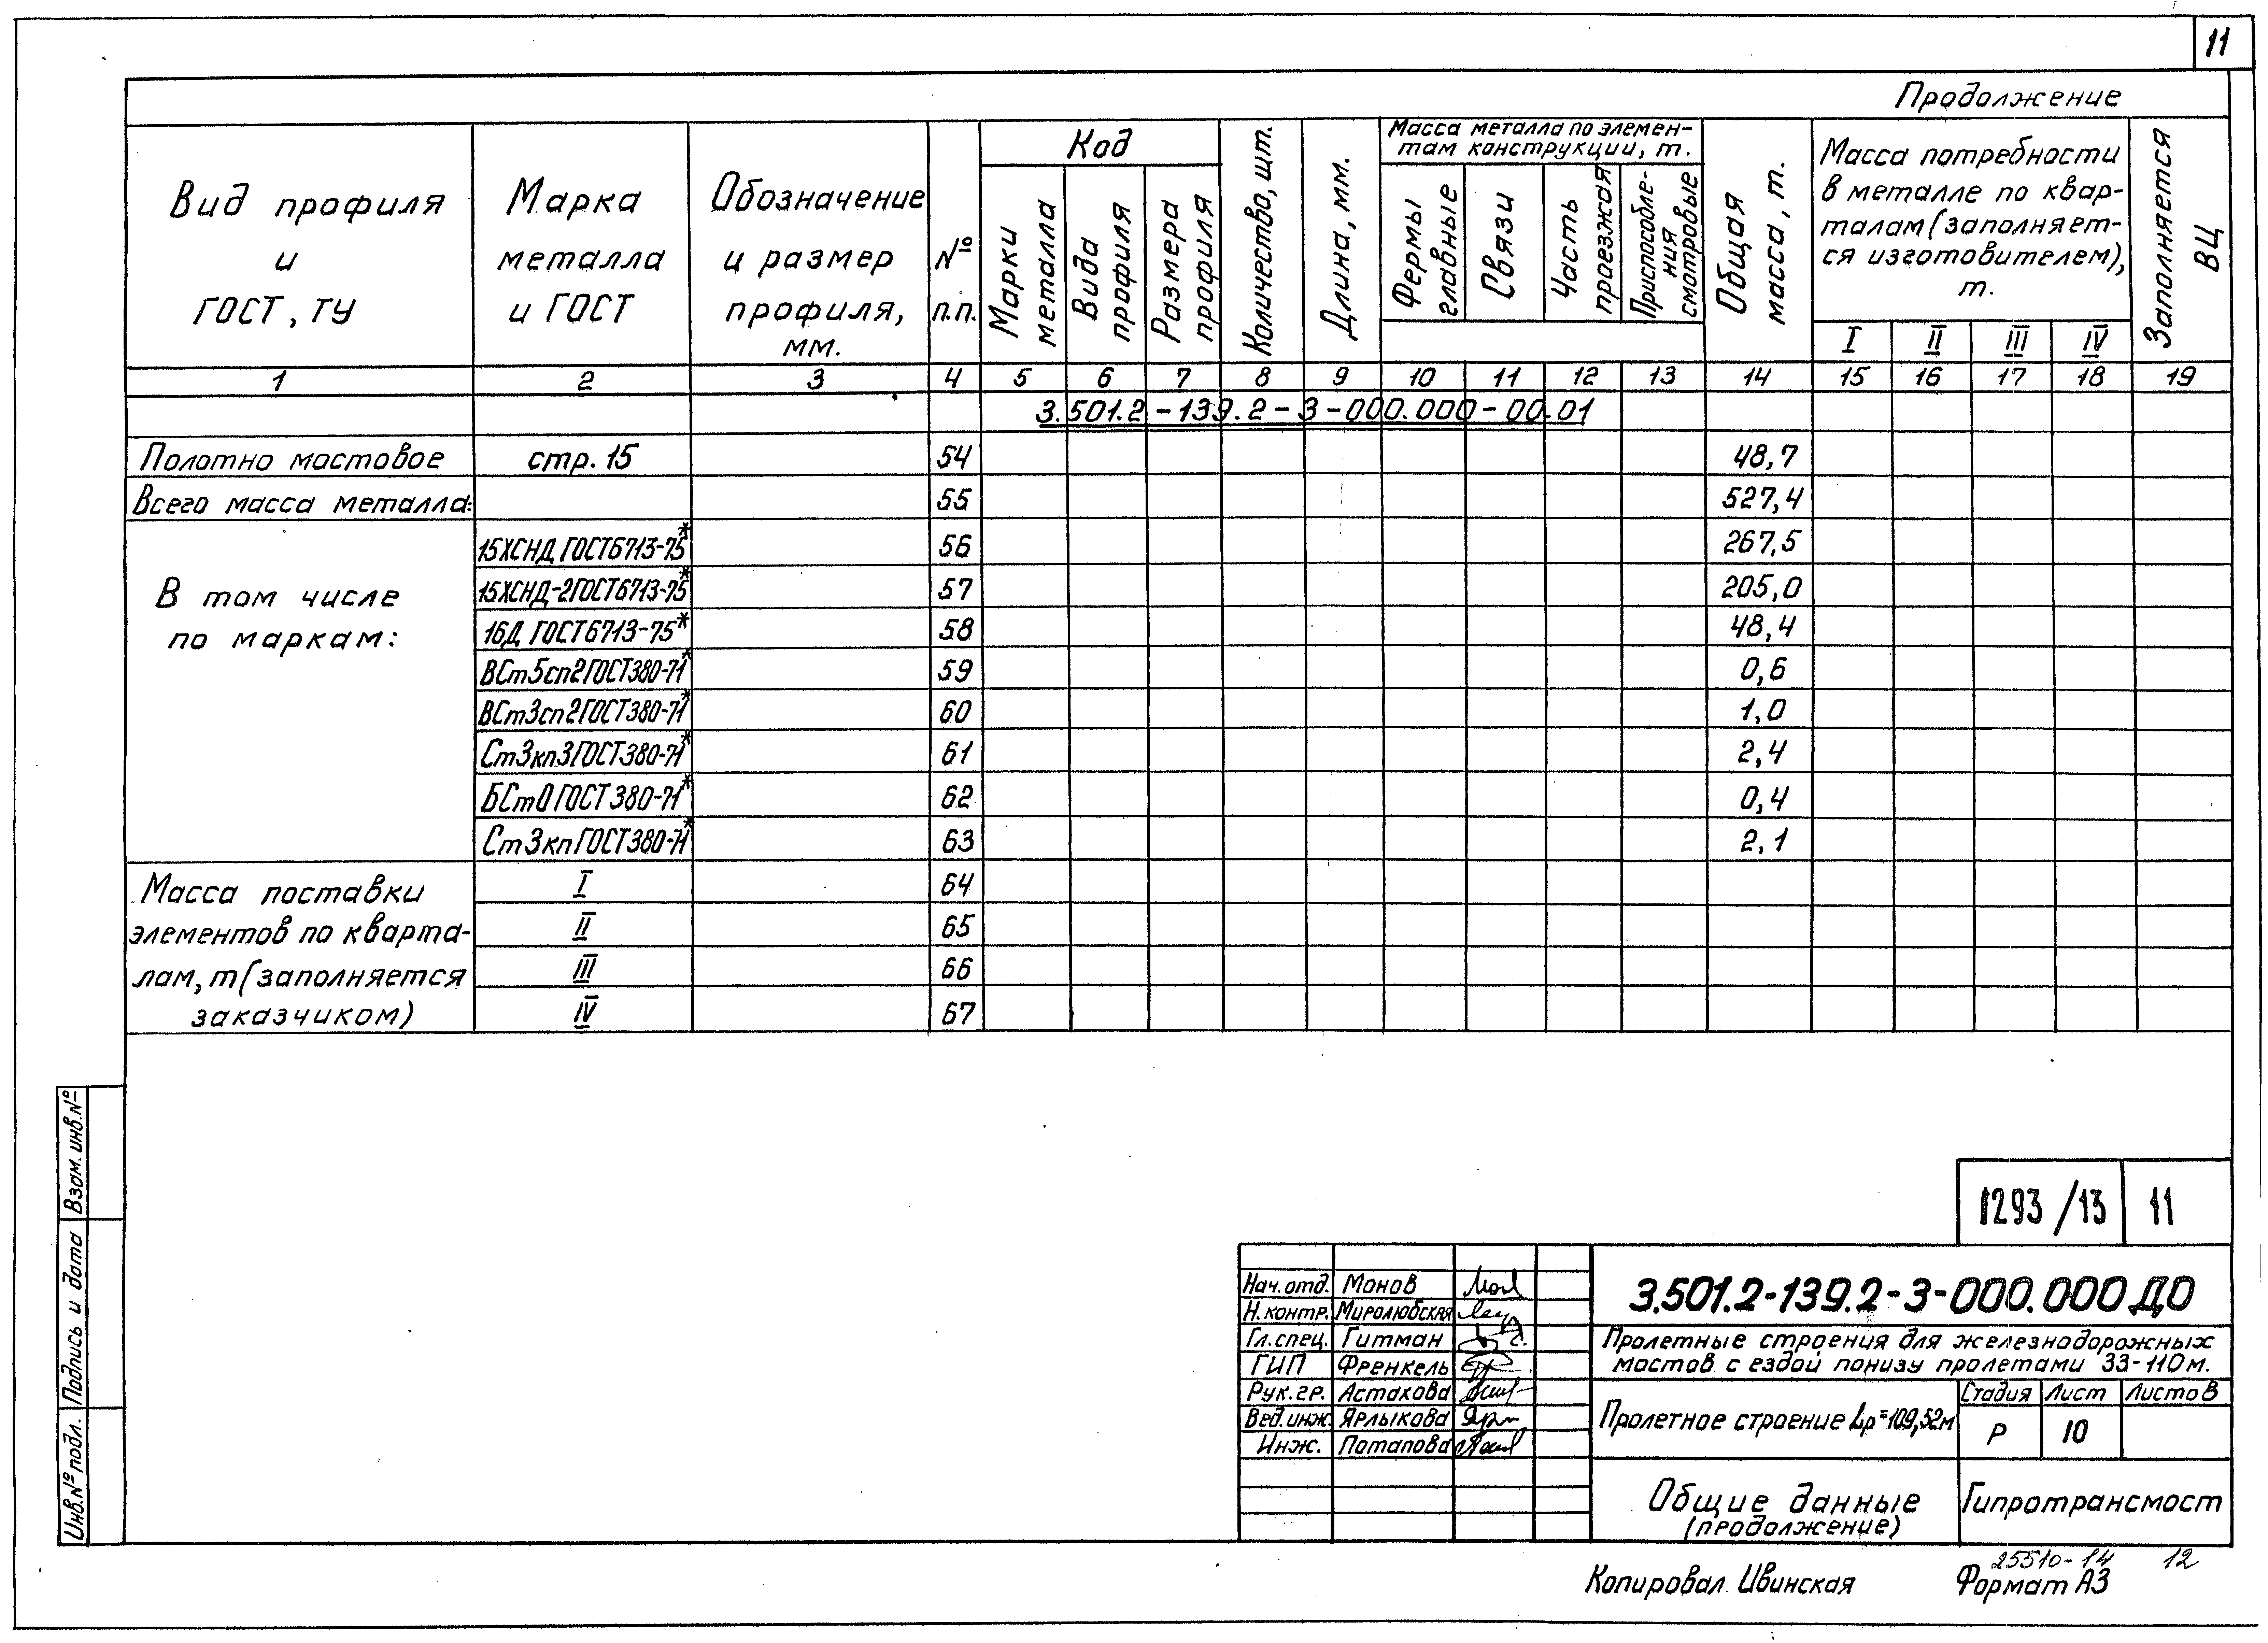 11
Продолжение
Вид профиля
и
ГОСТ, ТУ
Марка
металла
и ГОСТ
Обозначение
и размер
профиля,
мм.
№
п.п.
Код
Марки
металла
Вида
профиля
Размера
профиля
Количество, шт.
Длина, мм.
Масса металла по элемен-
там конструкции, т.
Фермы
главные
Связи
Часть
проезжая
Приспособле-
ния
смотровые
Общая
масса, т.
Масса потребности
в металле по квар-
талам (заполняет-
ся изготовителем),
т.
I II III IV
Заполняется
ВЦ
1 2 3 4 5 6 7 8 9 10 11 12 13 14 15 16 17 18 19
3.501.2-139.2-3-000.000-00.01
Полотно мостовое стр. 15 54 48,7
Всего масса металла: 55 527,4
В том числе
по маркам:
15ХСНД ГОСТ6713-75* 56 267,5
15ХСНД-2ГОСТ6713-75* 57 205,0
16Д ГОСТ6713-75* 58 48,4
ВСт5сп2ГОСТ380-71* 59 0,6
ВСт3сп2ГОСТ380-71* 60 1,0
Ст3кп3ГОСТ380-71* 61 2,4
БСт0ГОСТ380-71* 62 0,4
Ст3кпГОСТ380-71* 63 2,1
Масса поставки
элементов по кварта-
лам, т (заполняется
заказчиком)
I 64
II 65
III 66
IV 67
Взам. инв.№
Подпись и дата
Инв.№ подл.
1293/13 11
Нач.отд. Монов
Н.контр. Миролюбская
Гл.спец. Гитман
ГИП Френкель
Рук.гр. Астахова
Вед.инж. Ярлыкова
Инж. Потапова
3.501.2-139.2-3-000.000 ДО
Пролетные строения для железнодорожных
мостов с ездой понизу пролетами 33-110м.
Пролетное строение Lp=109,52м
Стадия Лист Листов
Р 10
Общие данные
(продолжение)
Гипротрансмост
25510-14 12
Копировал. Ивинская Формат А3